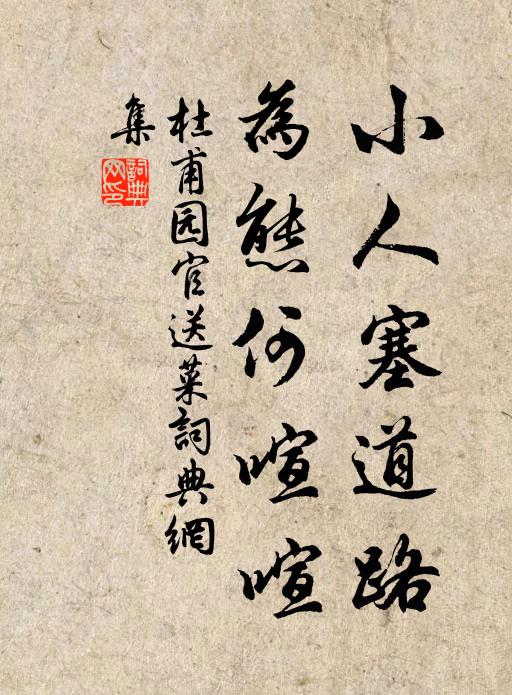 小人塞道路
為態何喧喧
杜甫园官送菜詞典網
集
詞典
网印